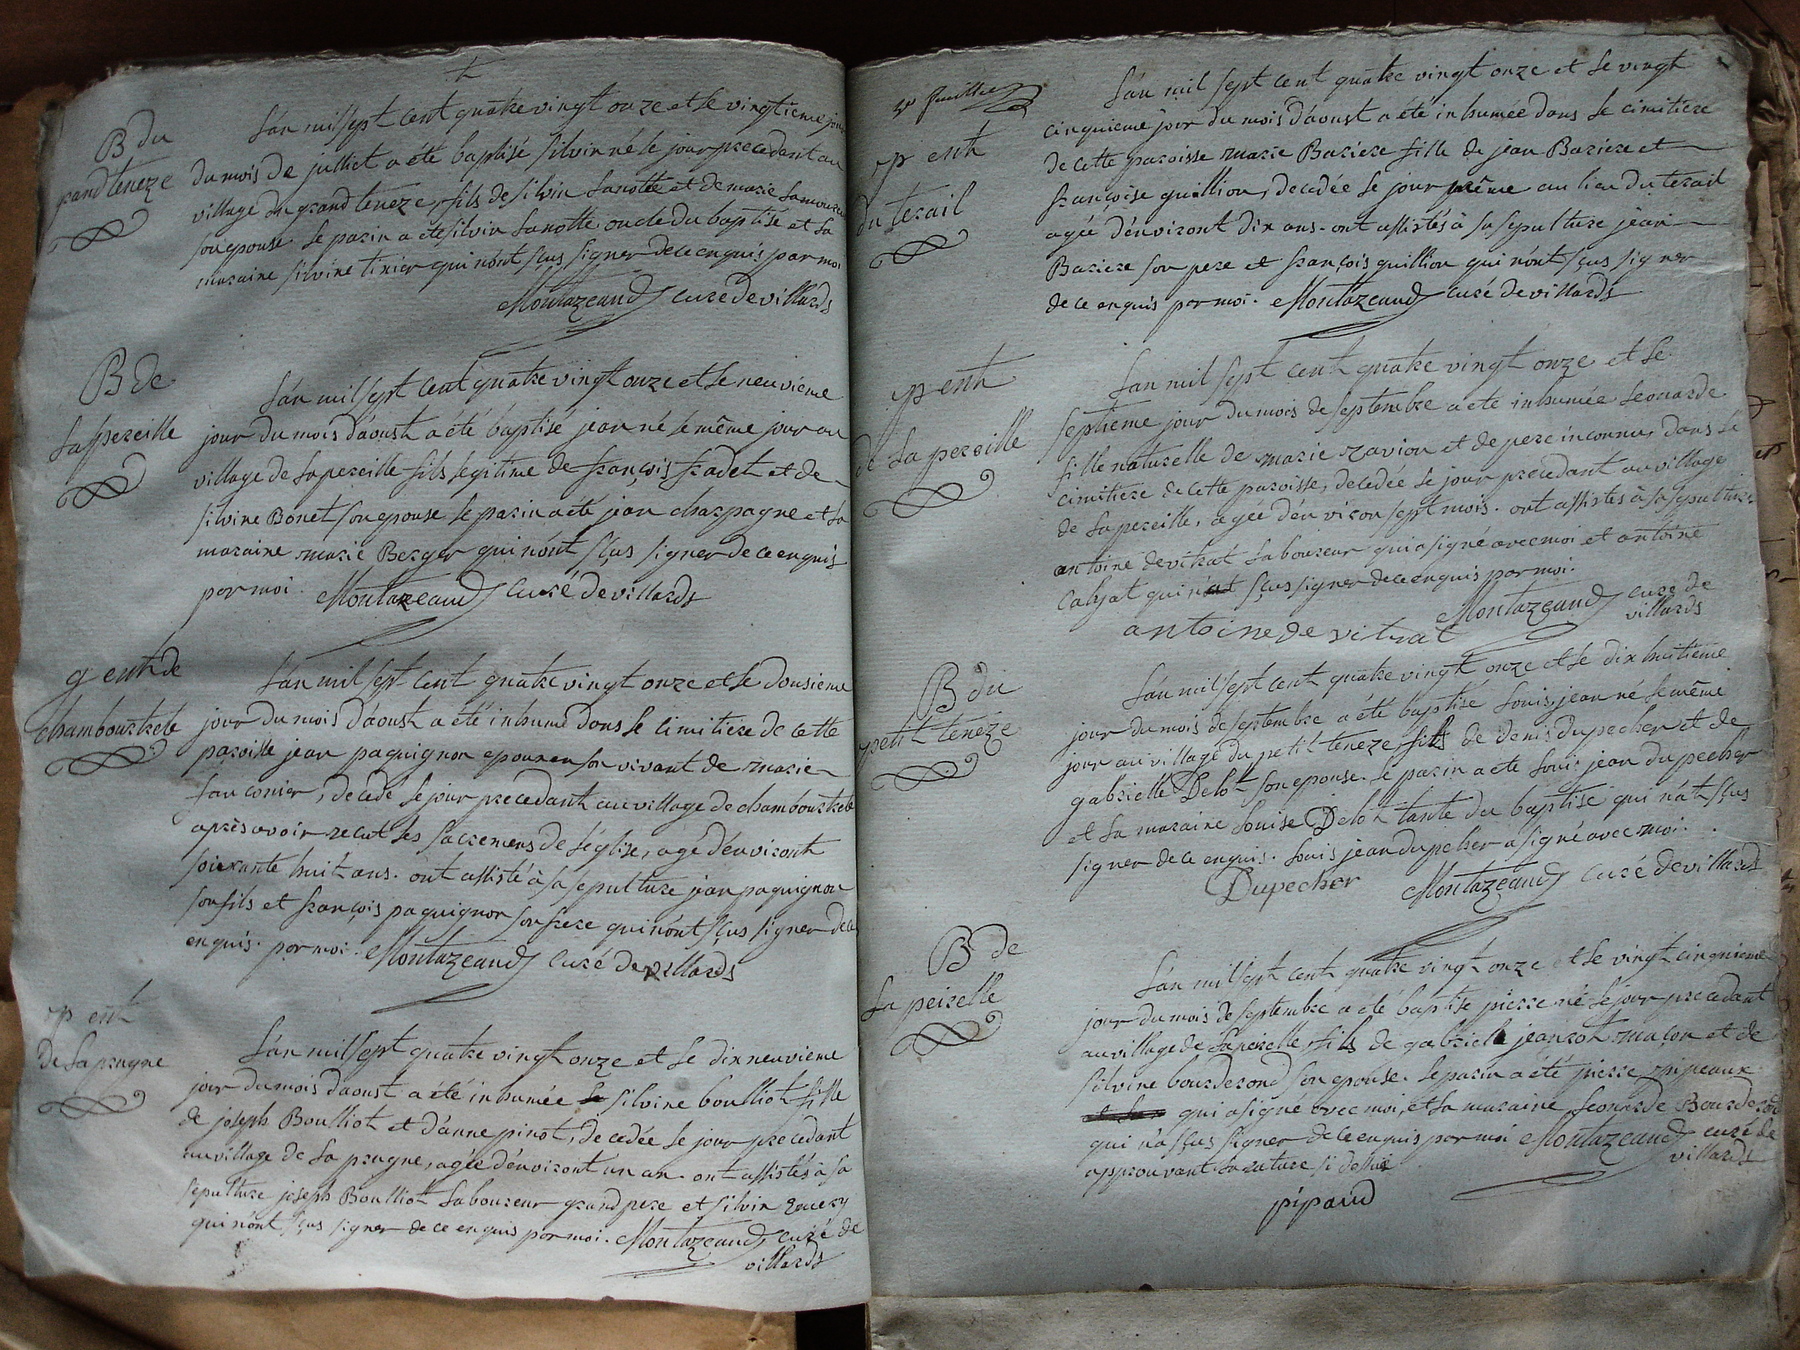 B du
grand teneze
L'an mil sept cent quatre vingt onze et le vingtieme jour
du mois de julliet a été baptisé silvin né le jour precedant au
village du grand teneze, fils de silvin Lanotte et de marie Lamoureu
son epouse. le parin a été silvin Lanotte oncle du baptisé et la
maraine silvine tixier qui n'ont sçus signer de ce enquis par moi
Montazeaud curé de villards
B de
Lapereille
L'an mil sept cent quatre vingt onze et le neuvieme
jour du mois d'aoust a été baptisé jean né le même jour au
village de Lapereille fils legitime de françois fradet et de
silvine Bonet son epouse le parin a été jean charpagne et la
maraine marie Berger qui n'ont sçus signer de ce enquis
par moi. Montazeaud curé de villards
g ent de
chambourtrete
L'an mil sept cent quatre vingt onze et le dousieme
jour du mois d'aoust a été inhumé dans le cimitiere de cette
paroisse jean paquignon epoux en son vivant de marie
fauconier, decedé le jour precedant au village de chambourtrete
après avoir recut les sacremens de l'église, agé d'environt
soixante huit ans. ont assisté à sa sepulture jean paquignon
son fils et françois paquignon son frere qui n'ont sçus signer de ce
enquis. par moi. Montazeaud curé de villards
p ent
de Laprugne
L'an mil sept quatre vingt onze et le dix neuvieme
jour du mois d'aoust a été inhumée silvine boulliot fille
de joseph Boulliot et d'anne pinot, decedée le jour precedant
au village de La prugne, agée d'environt un an. ont assistés à sa
sepulture joseph Boulliot laboureur grand pere et silvin Emery
qui n'ont sçus signer de ce enquis par moi. Montazeaud curé de
villards
feuillet
p ent
du terail
L'an mil sept cent quatre vingt onze et le vingt
cinquieme jour du mois d'aoust a été inhumée dans le cimitiere
de cette paroisse marie Bariere fille de jean Bariere et
françoise quillion, decedée le jour même au lieu du terail
agée d'environt dix ans. ont assistés à sa sepulture jean
Bariere son pere et françois quillion qui n'ont sçus signer
de ce enquis par moi. Montazeaud curé de villards
p ent
de Lapereille
L'an mil sept cent quatre vingt onze et le
septieme jour du mois de septembre a été inhumée Leonarde
fille naturelle de marie ravion et de pere inconnu, dans le
cimitiere de cette paroisse, decedée le jour precedant au village
de Lapereille, agée d'environ sept mois. ont assistés à sa sepulture
antoine devitrat laboureur qui a signé avec moi et antoine
Calyat qui n'at sçus signer de ce enquis par moi.
Montazeaud curé de
villards
antoine de vitrat
B du
petit teneze
L'an mil sept cent quatre vingt onze et le dix huitieme
jour du mois de septembre a été baptisé Louis jean né le même
jour au village du petit teneze, fils de denis dupecher et de
gabrielle Delot son epouse. le parin a été Louis jean dupecher
et la maraine Louise Delot tante du baptisé qui n'at sçus
signer de ce enquis. Louis jean dupecher a signé avec moi.
Dupecher Montazeaud curé de villards
B de
Lapeirelle
L'an mil sept cent quatre vingt onze et le vingt cinquieme
jour du mois de septembre a été baptisé pierre né le jour precedant
au village de Lapeirelle, fils de gabriel jeanrot maçon et de
silvine bourderond son epouse. le parin a été pierre pipeaux
qui a signé avec moi, et la maraine Leonarde Bourderond
qui n'a sçus signer de ce enquis par moi Montazeaud curé de
villards
approuvant la rature si dessus
pipaud